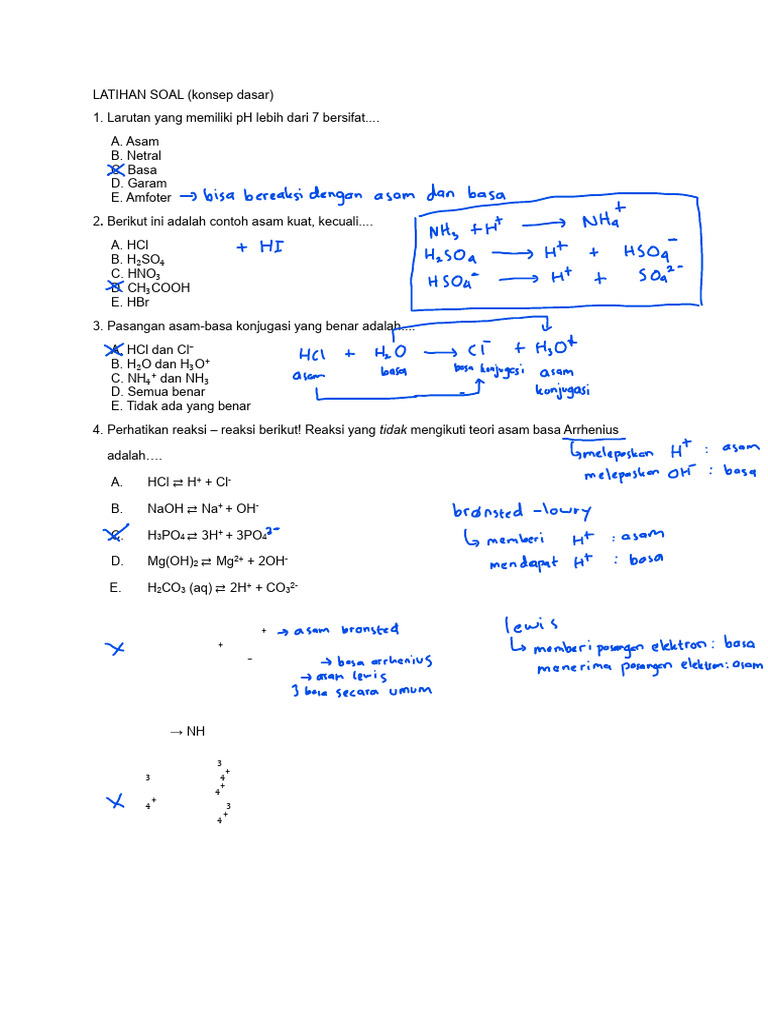 LATIHAN SOAL (konsep dasar)
1. Larutan yang memiliki pH lebih dari 7 bersifat....
A. Asam
B. Netral
C. Basa
D. Garam
E. Amfoter → bisa bereaksi dengan asam dan basa
2. Berikut ini adalah contoh asam kuat, kecuali....
A. HCl + HI
B. H₂SO₄
C. HNO₃
D. CH₃COOH
E. HBr
NH₃ + H⁺ → NH₄⁺
H₂SO₄ → H⁺ + HSO₄⁻
HSO₄⁻ → H⁺ + SO₄²⁻
3. Pasangan asam-basa konjugasi yang benar adalah....
A. HCl dan Cl⁻
B. H₂O dan H₃O⁺
C. NH₄⁺ dan NH₃
D. Semua benar
E. Tidak ada yang benar
HCl + H₂O → Cl⁻ + H₃O⁺
asam basa basa konjugasi asam
konjugasi
4. Perhatikan reaksi – reaksi berikut! Reaksi yang tidak mengikuti teori asam basa Arrhenius
adalah….
melepaskan H⁺ : asam
melepaskan OH⁻ : basa
A. HCl ⇄ H⁺ + Cl⁻
B. NaOH ⇄ Na⁺ + OH⁻
C. H₃PO₄ ⇄ 3H⁺ + 3PO₄³⁻
D. Mg(OH)₂ ⇄ Mg²⁺ + 2OH⁻
E. H₂CO₃ (aq) ⇄ 2H⁺ + CO₃²⁻
brønsted-lowry
memberi H⁺ : asam
mendapat H⁺ : basa
+ → asam bronsted
+
− → basa arrhenius
→ asam lewis
} basa secara umum
lewis
memberi pasangan elektron : basa
menerima pasangan elektron : asam
→ NH
3
3 4⁺
4⁺
4⁺ 3
4⁺